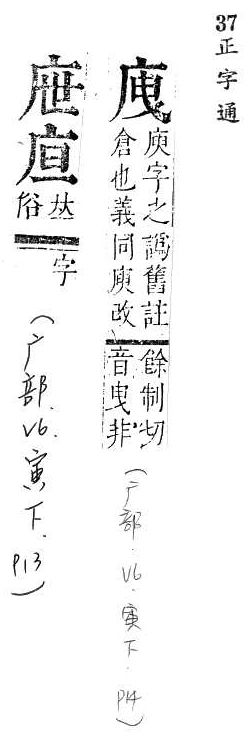 37正字通
庾字之譌舊註
倉也義同庾改
餘制切
音曳非
(广部.V6.寅下.P14)
俗
字
(广部.V6.寅下.P13)